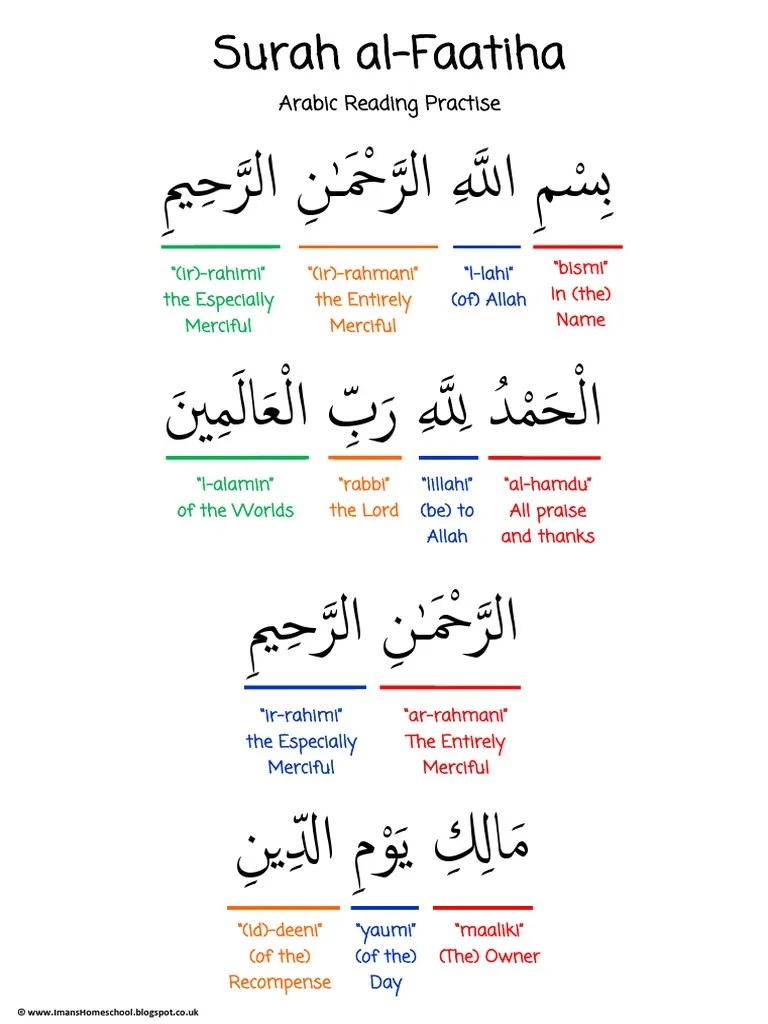 Surah al-Faatiha
Arabic Reading Practise
بِسْمِ اللَّهِ الرَّحْمَٰنِ الرَّحِيمِ
"bismi" "l-lahi" "(ir)-rahmani" "(ir)-rahimi"
In (the) (of) Allah the Entirely the Especially
Name Merciful Merciful
الْحَمْدُ لِلَّهِ رَبِّ الْعَالَمِينَ
"al-hamdu" "lillahi" "rabbi" "l-alamin"
All praise (be) to the Lord of the Worlds
and thanks Allah
الرَّحْمَٰنِ الرَّحِيمِ
"ar-rahmani" "ir-rahimi"
The Entirely the Especially
Merciful Merciful
مَالِكِ يَوْمِ الدِّينِ
"maaliki" "yaumi" "(id)-deeni"
(The) Owner (of the) (of the)
Day Recompense
© www.ImansHomeschool.blogspot.co.uk